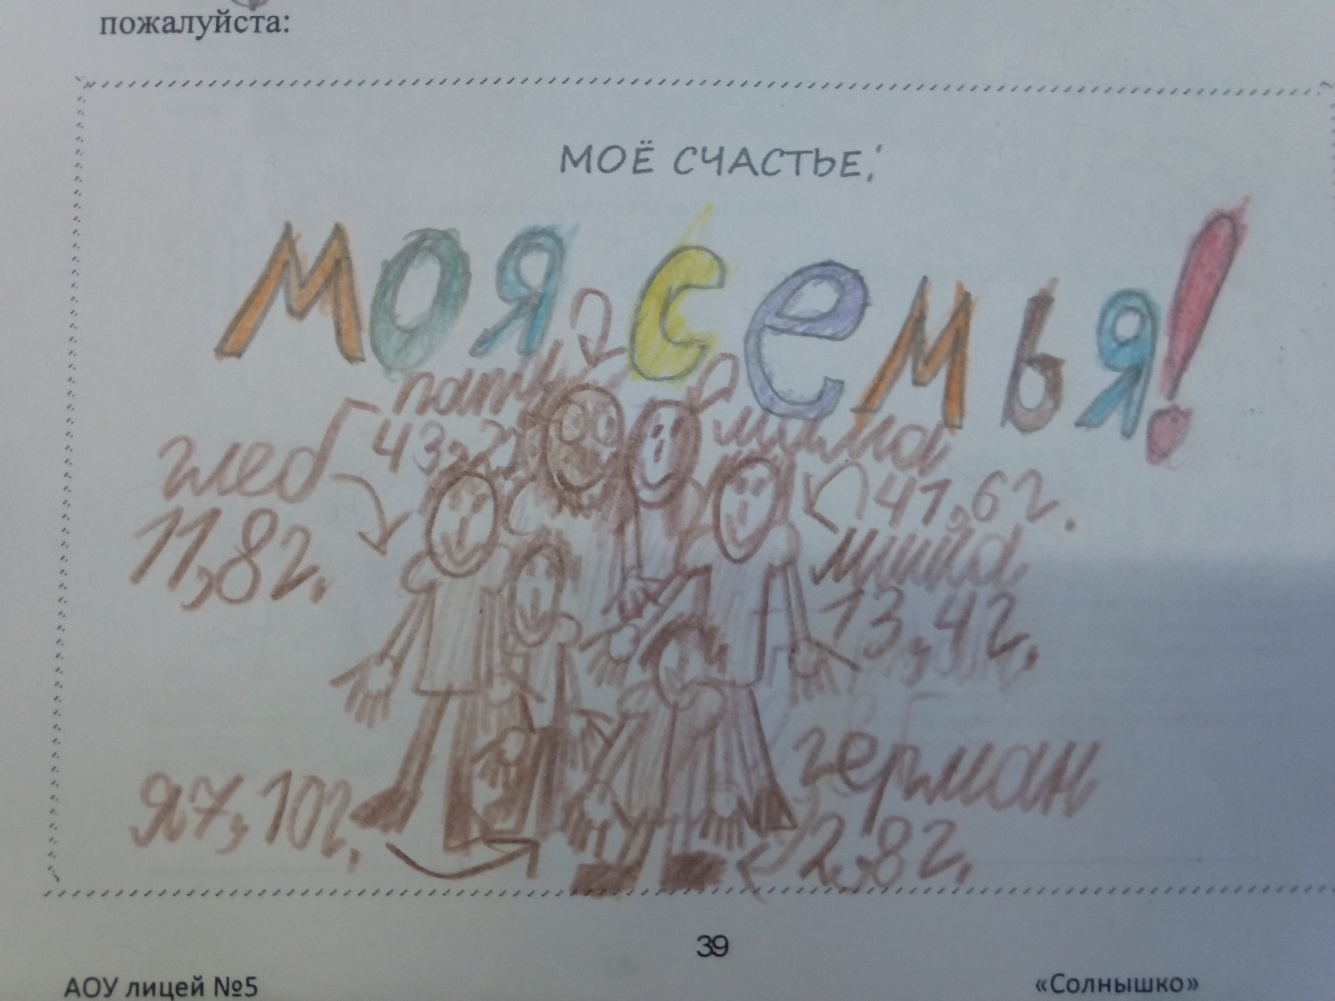 пожалуйста:
МОЁ СЧАСТЬЕ,
моя семья!
папа
43,2г.
мама
41,6г.
глеб
11,8г.
миша
13,4г.
я 7,10г.
герман
2,8г.
39
АОУ лицей №5
«Солнышко»